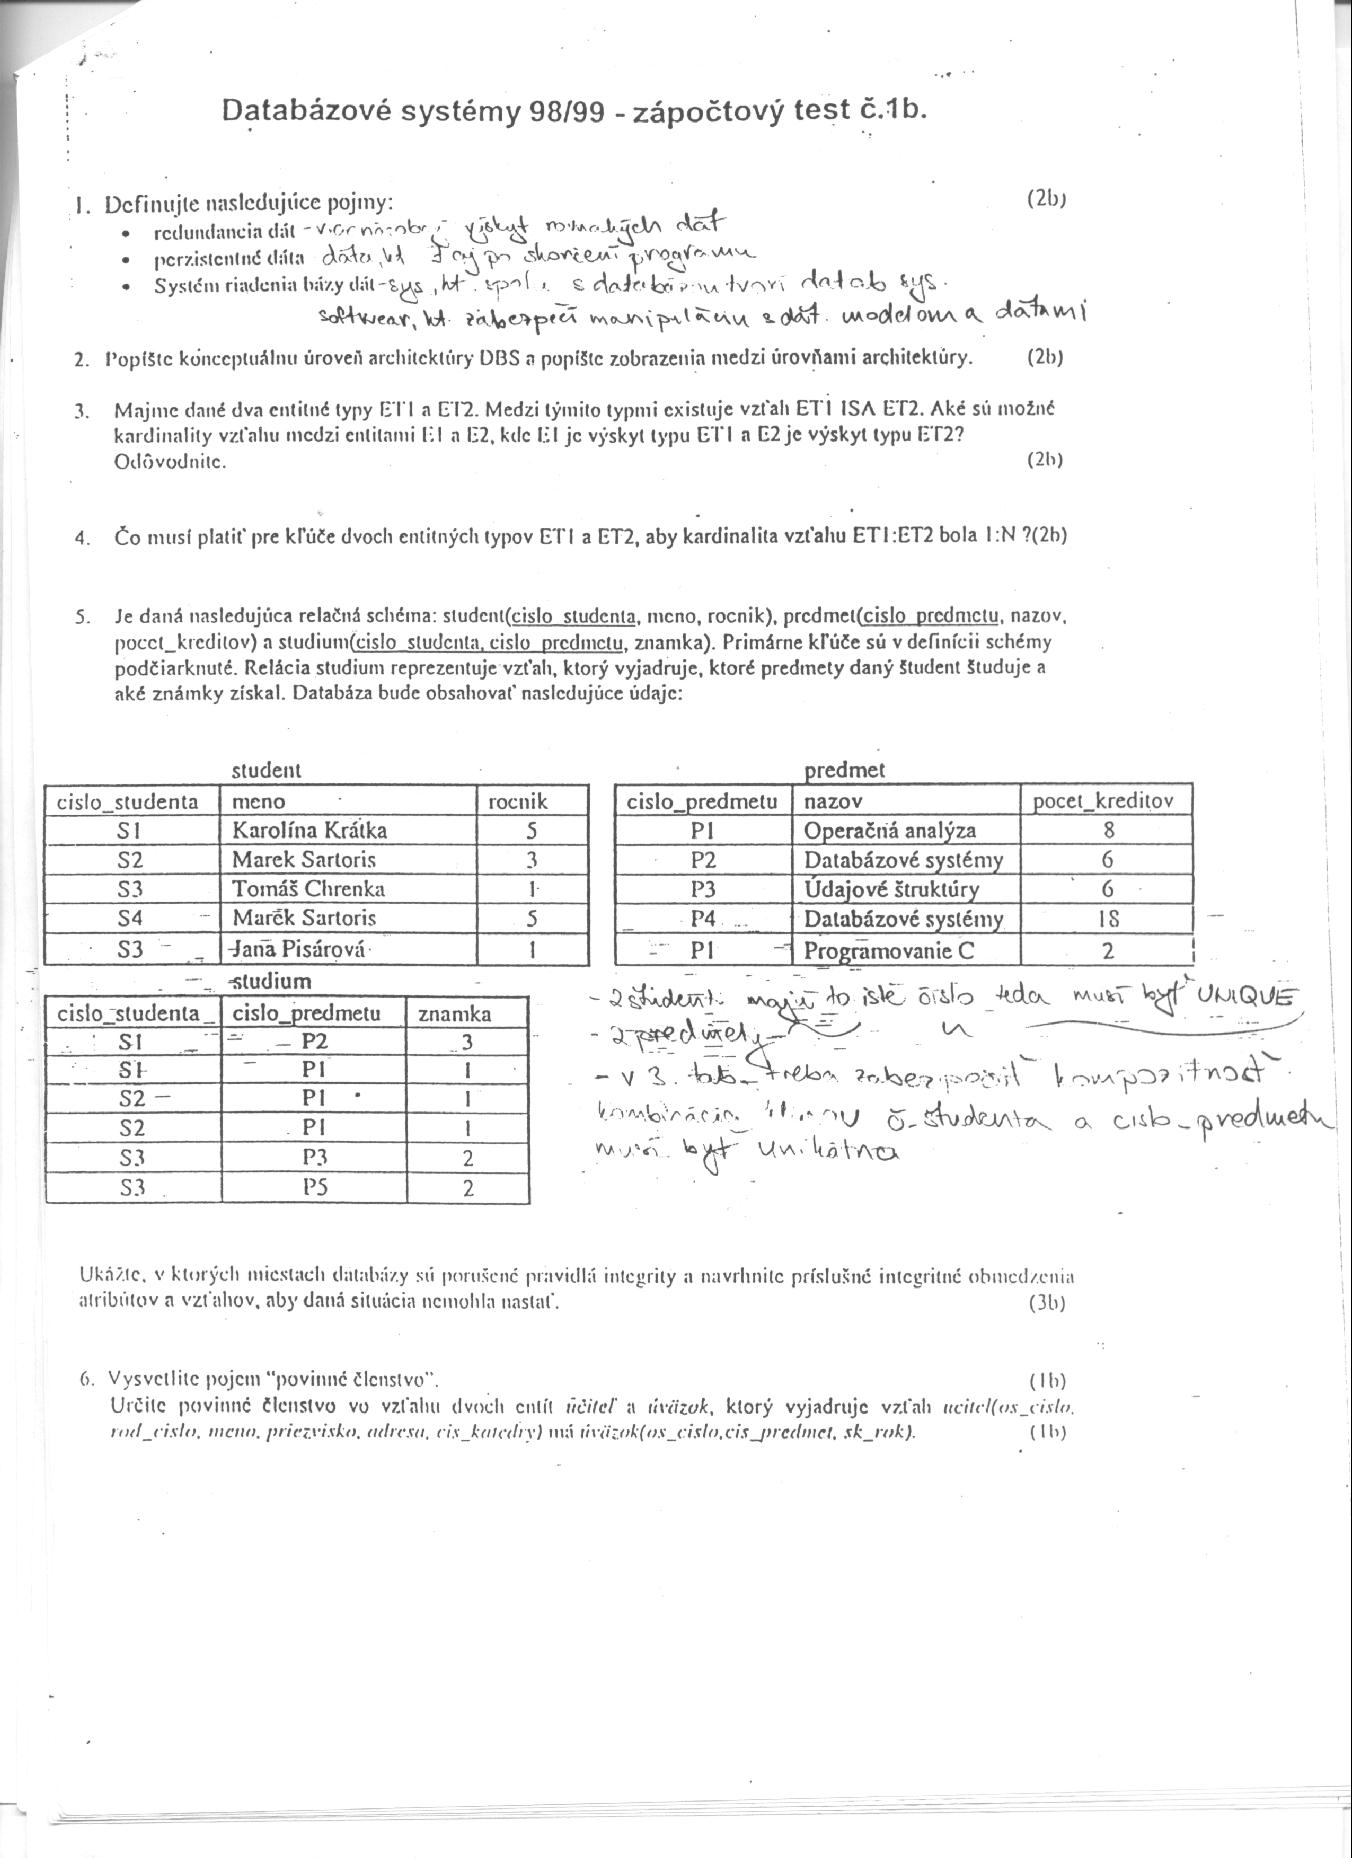 Databázové systémy 98/99 - zápočtový test č.1b.
1. Definujte nasledujúce pojmy: (2b)
• redundancia dát - viacnásobný výskyt rovnakých dát
• perzistentné dáta dáta, kt aj po skončení programu
• Systém riadenia bázy dát - sys, kt. spol. s databázou tvorí datab sys.
softwear, kt. zabezpečí manipuláciu s dát. modelom a dátami
2. Popíšte konceptuálnu úroveň architektúry DBS a popíšte zobrazenia medzi úrovňami architektúry. (2b)
3. Majme dané dva entitné typy ET1 a ET2. Medzi týmito typmi existuje vzťah ET1 ISA ET2. Aké sú možné
kardinality vzťahu medzi entitami E1 a E2, kde E1 je výskyt typu ET1 a E2 je výskyt typu ET2?
Odôvodnite. (2b)
4. Čo musí platiť pre kľúče dvoch entitných typov ET1 a ET2, aby kardinalita vzťahu ET1:ET2 bola 1:N ?(2b)
5. Je daná nasledujúca relačná schéma: student(cislo_studenta, meno, rocnik), predmet(cislo_predmetu, nazov,
pocet_kreditov) a studium(cislo_studenta, cislo_predmetu, znamka). Primárne kľúče sú v definícii schémy
podčiarknuté. Relácia studium reprezentuje vzťah, ktorý vyjadruje, ktoré predmety daný študent študuje a
aké známky získal. Databáza bude obsahovať nasledujúce údaje:
student
cislo_studenta meno rocnik
S1 Karolína Krátka 5
S2 Marek Sartoris 3
S3 Tomáš Chrenka 1
S4 Marek Sartoris 5
S3 Jana Pisárová 1
predmet
cislo_predmetu nazov pocet_kreditov
P1 Operačná analýza 8
P2 Databázové systémy 6
P3 Údajové štruktúry 6
P4 Databázové systémy 18
P1 Programovanie C 2
studium
cislo_studenta cislo_predmetu znamka
S1 P2 3
S1 P1 1
S2 P1 1
S2 P1 1
S3 P3 2
S3 P5 2
- 2 študenti majú to isté číslo teda musí byť UNIQUE
- 2 predmety
- v 3. tab. treba zabezpečiť kompozitnosť
kombinácia kľúčov č_študenta a cislo_predmetu
musí byť unikátna
Ukážte, v ktorých miestach databázy sú porušené pravidlá integrity a navrhnite príslušné integritné obmedzenia
atribútov a vzťahov, aby daná situácia nemohla nastať. (3b)
6. Vysvetlite pojem "povinné členstvo". (1b)
Určite povinné členstvo vo vzťahu dvoch entít učiteľ a úväzok, ktorý vyjadruje vzťah ucitel(os_cislo,
rod_cislo, meno, priezvisko, adresa, cis_katedry) má úväzok(os_cislo,cis_predmet, sk_rok). (1b)